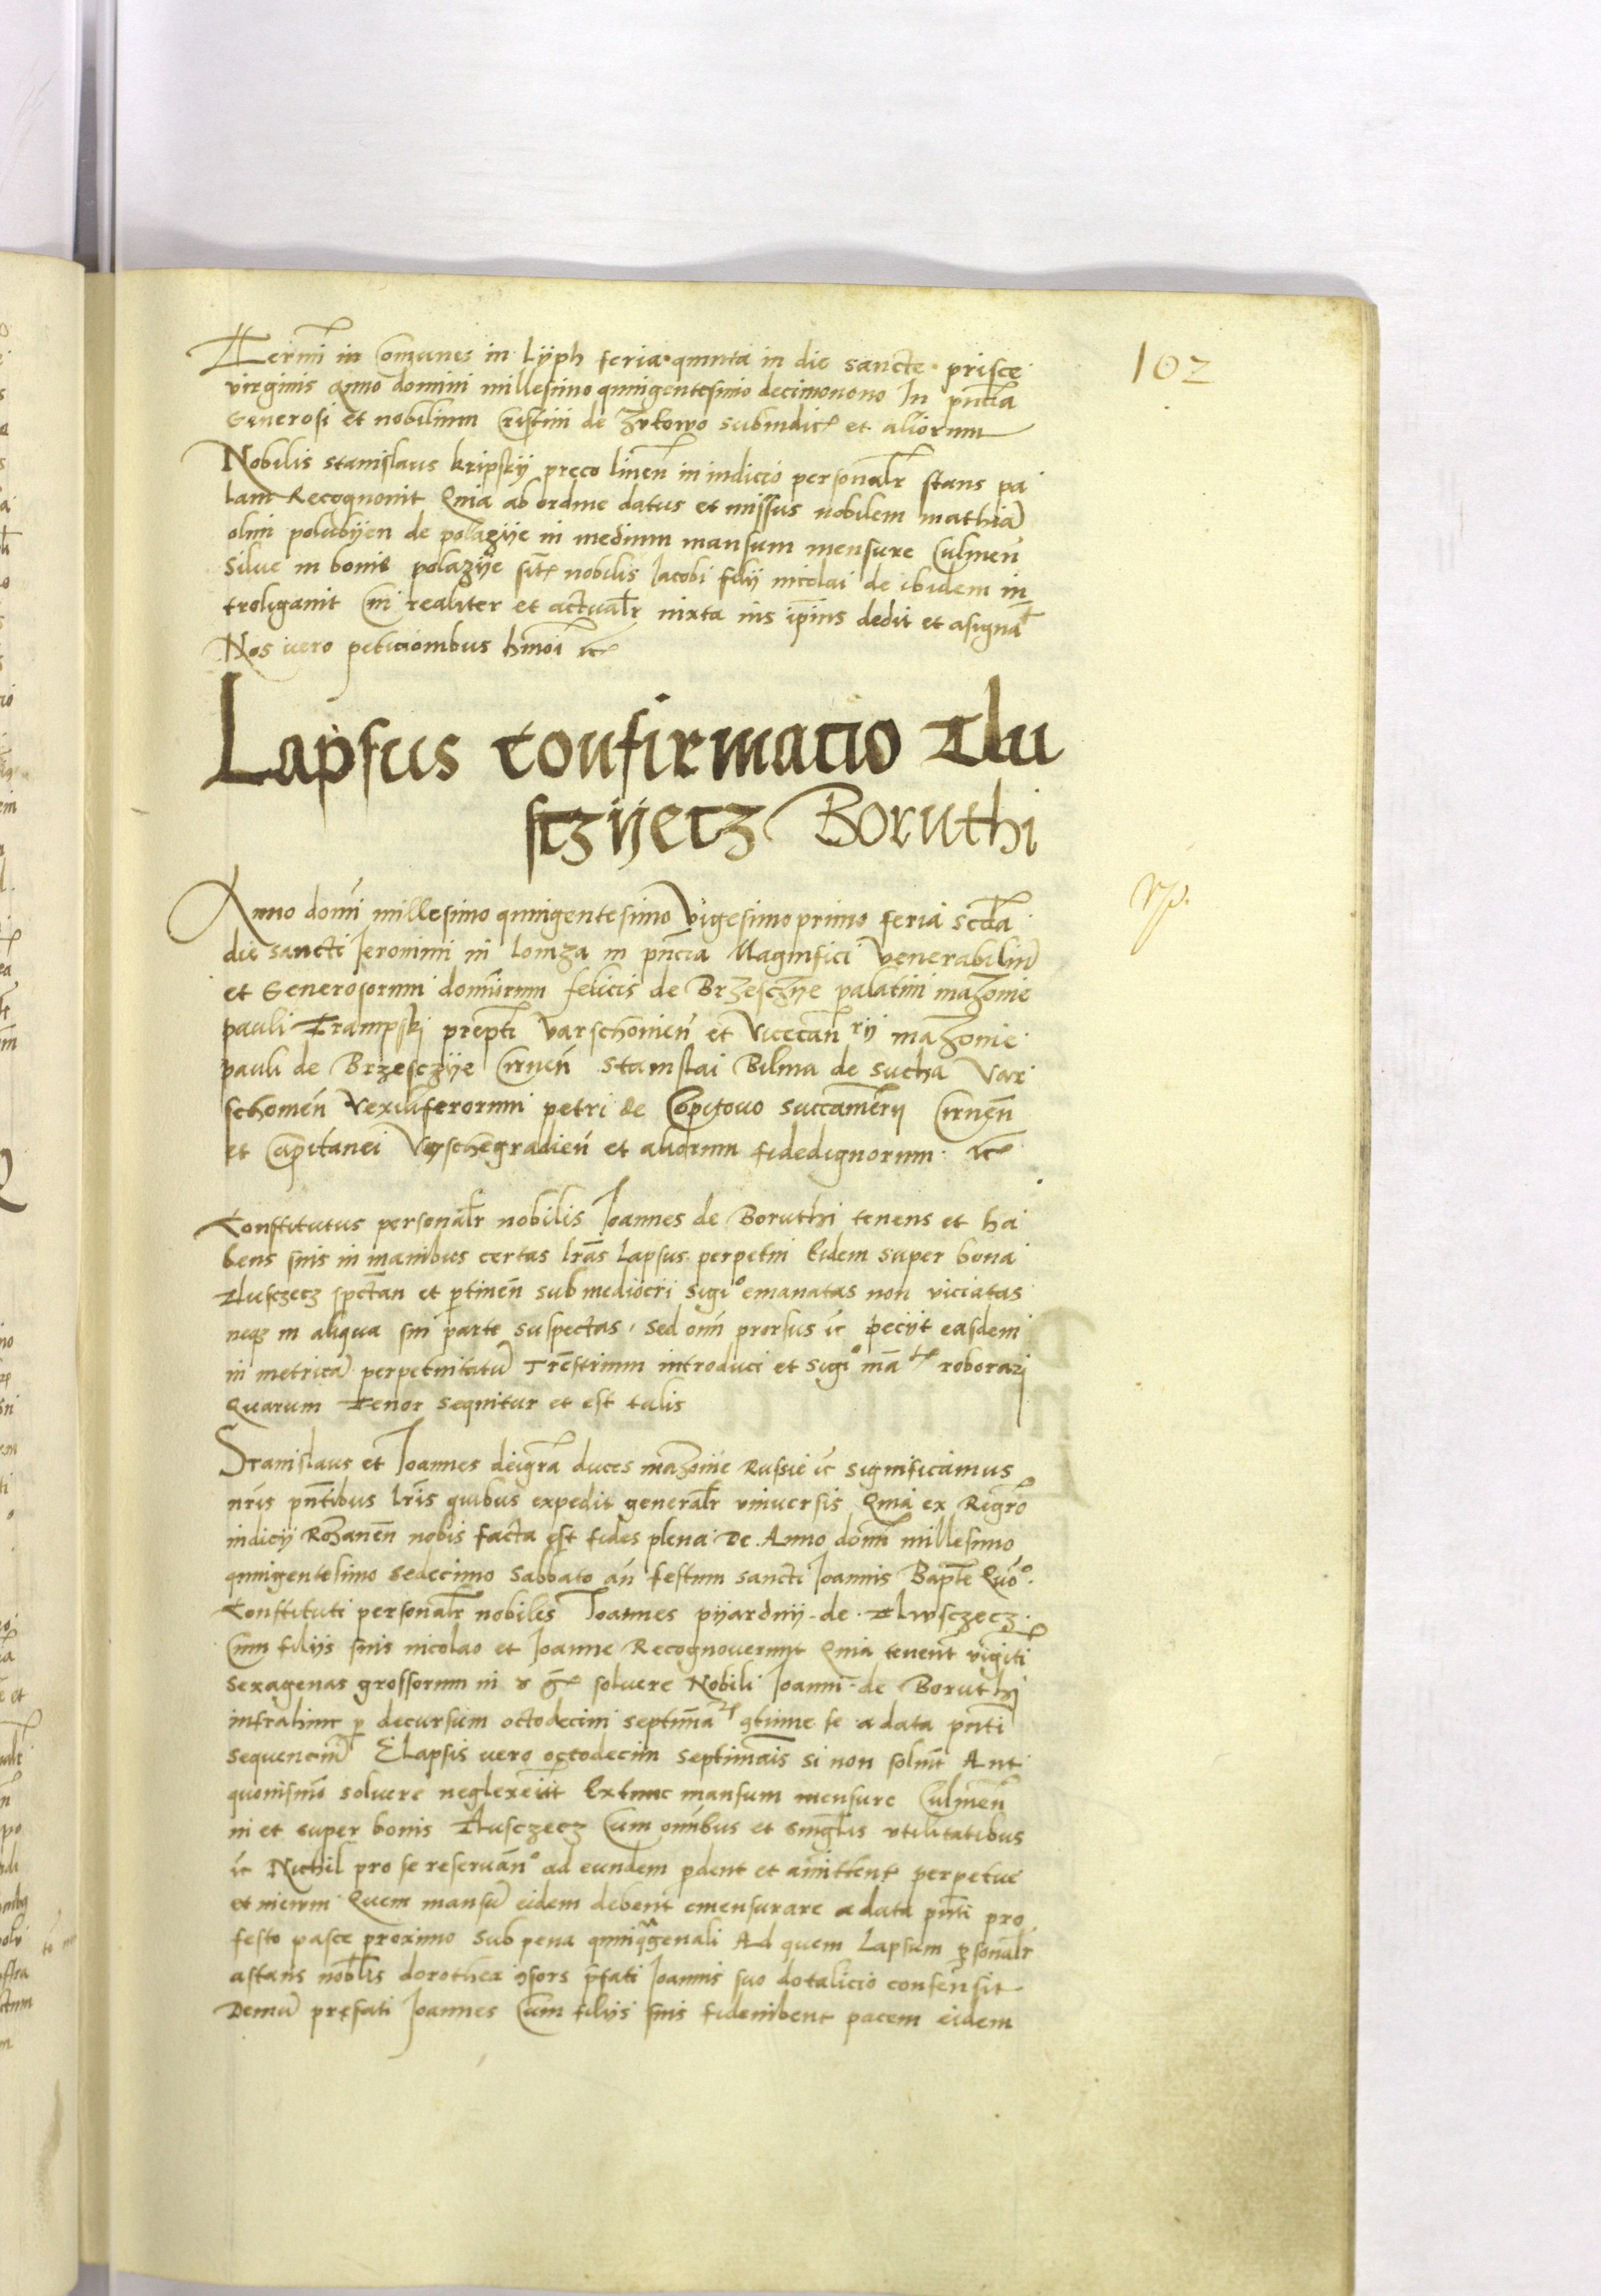 102
Termi in Comunes in Lÿph feria quinta in die sancte prisce
virginis Anno domini millesimo quingentesimo decimonono In pn̄cia
Generosi et nobilium Cristini de Zytowo subiudic̄ et aliorum
Nobilis Stanislaus kripskÿ preco linen̄ in iudicio personalr̄ stans pa
lam Recognouit Quia ab ordine datus et missus nobilem mathiā
olim polubÿen de polazÿe in medium mansum mensure Culmen̄
Silue in bonis polazÿe sit̄ nobilis Jacobi filÿ nicolai de ibidem in
troligauit Cui realiter et actualr̄ iuxta ius ip̄ius dedit et asignat̄
Nos uero peticionibus hmōi ec̄
Lapsus confirmacio Tlu
sczÿecz Boruthi
Anno domi millesimo quingentesimo Vigesimoprimo feria scd̄a
die sancti Jeronimi in lomza in pn̄cia Magnifici Venerabiliū
et Generosorum dominorum felicis de Brzesczÿe palatini mazouie
pauli Trampski prep̄ti Varschouien̄ et Vicecan̄rÿ mazouie
pauli de Brzesczÿe Cirnen̄ Stanislai Bilma de sucha Var
schouien̄ Vexilliferorum petri de Copitowo succamerÿ Cirnen̄
et Capitanei Vyschegradien̄ et aliorum fidedignorum ec̄
Constitutus personalr̄ nobilis Joannes de Boruthi tenens et ha
bens suis in manibus certas lr̄as lapsus perpetui Eidem super bona
Tlusczecz spectan̄ et ptinen̄ sub mediocri sigio emanatas non viciatas
neqz in aliqua sui parte suspectas, sed omi prorsus ec̄ peciÿt easdem
in metricā perpetuitatū Trēstrium introduci et sigio mā roborari
Quarum Tenor sequitur et est talis
Stanislaus et Joannes deigra duces mazouie Russie ec̄ significamus
nr̄is pn̄tibus lr̄is quibus expedit generalr̄ vniuersis Quia ex Regr̄o
iudicÿ Rozanen̄ nobis facta est fides plena De Anno domi millesimo
quingentesimo sedecimo Sabbato an̄ festum sancti Joannis Bapt̄e Quo.
Constituti personalr̄ nobiles Joannes pÿardnÿ de Tlwsczecz
Cum filÿs suis nicolao et Joanne Recognouerunt Quia tenent̄ vigiti
Sexagenas grossorum in soluere Nobili Joanni de Boruthi
infrahinc p decursum octodecim septimā gtinue se a data pn̄ti
sequenciū Elapsis uero octodecim septimais si non soluīt Aut
quouismō soluere neglexerint Extunc mansum mensure Culmen̄
in et super bonis Tlusczecz Cum omibus et singlis vtilitatibus
ec̄ Nichil pro se reseruan̄o ad eundem pdent et amittent perpetue
et in eum Quem mansū eidem debent emensurare a data pn̄ti pro
festo pasce proximo sub pena quinqagenali Ad quem lapsum psonalr̄
astans nobilis dorothea gsors pfati Joannis suo dotalicio consensit
Demū prefati Joannes Cum filÿs suis fideiubent pacem eidem